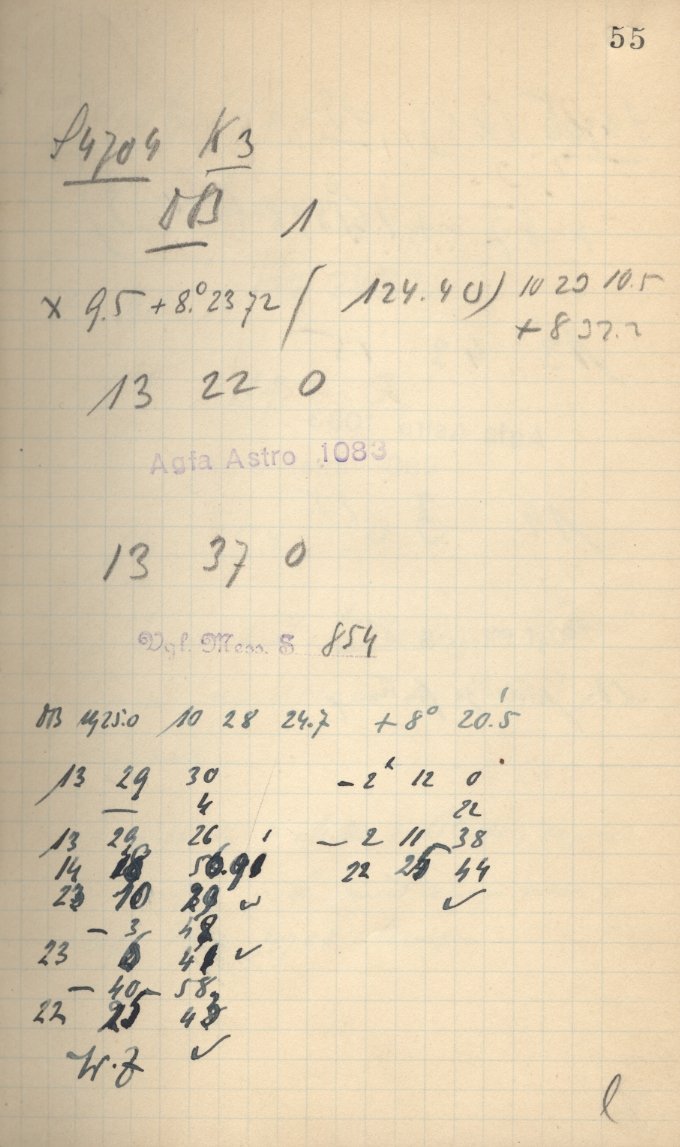 55
S4704 K3
DB 1
× 9.5 + 8.° 2372 ( 124.40) 10 20 10.5
+ 8 32.2
13 22 0
Agfa Astro 1083
13 37 0
Vgl. Mess. S 854
DB 1925.0 10 28 24.7 + 8° 20.'5
13 29 30 - 2ʰ 12 0
4 22
13 29 26 - 2 11 38
14 22 25 44
23 10 29 ✓ ✓
- 3 48
23 6 41 ✓
- 40 58
22 25 43
✓